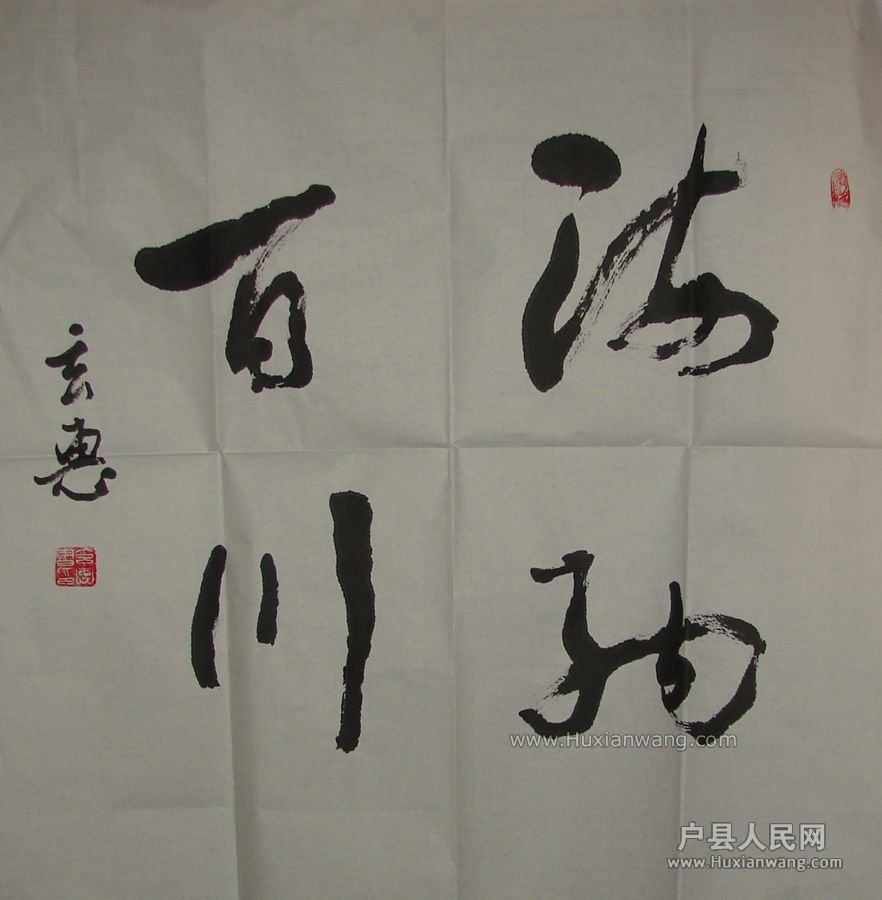 海纳
百川
玄惠
www.Huxianwang.com
户县人民网
www.Huxianwang.com